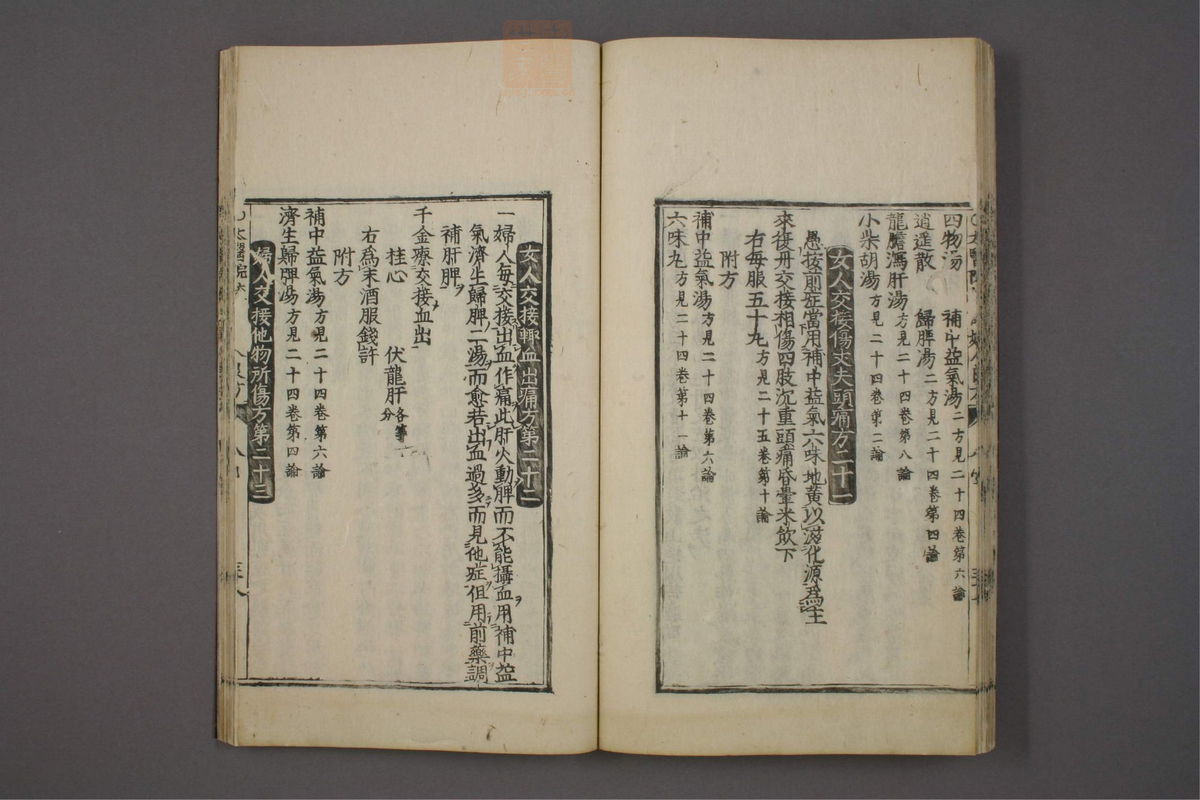 四物湯 補中益氣湯二方見二十四卷第六論
逍遥散 歸脾湯二方見二十四卷第四論
龍膽瀉肝湯方見二十四卷第八論
小柴胡湯方見二十四卷第二論
女人交接傷丈夫頭痛方二十一
愚按前症當用補中益氣六味地黄以滋化源爲主
來復丹交接相傷四肢沉重頭痛昏暈米飲下
右每服五十丸方見二十五卷第十論
附方
補中益氣湯方見二十四卷第六論
六味丸方見二十四卷第十一論
女人交接輙血出痛方第二十二
一婦人每交接出血作痛此肝火動脾而不能攝血用補中益
氣濟生歸脾二湯而愈若出血過多而見他症但用前藥調
補肝脾
千金療交接血出
桂心 伏龍肝各等分
右爲末酒服錢許
附方
補中益氣湯方見二十四卷第六論
濟生歸脾湯方見二十四卷第四論
婦人交接他物所傷方第二十三